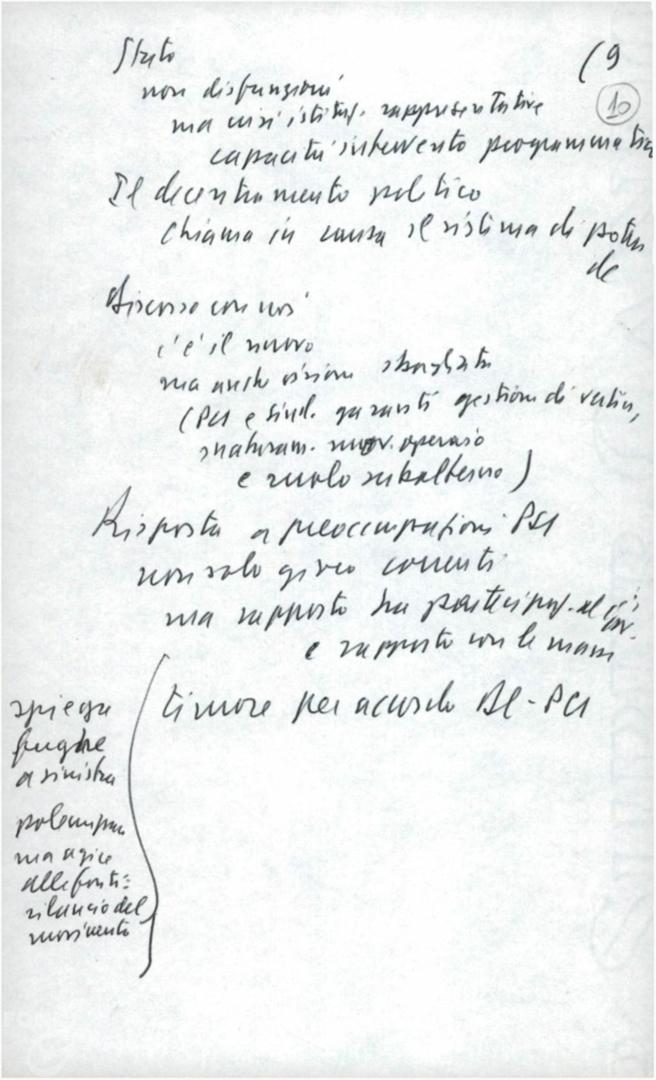 (9
10
Stato
non disfunzioni
ma crisi istituz. rappresentative
capacità intervento programmatico
Il decentramento politico
chiama in causa il sistema di potere
dc
Discorso con noi
c'è il nuovo
ma anche visione sbagliata
(PCI e sind. garanti gestione di vertice,
snaturam. mov. operaio
e ruolo subalterno)
Risposta a preoccupazioni PSI
non solo gioco correnti
ma rapporto tra partecipaz. al
e rapporto con le masse
timore per accordo DC-PCI
spiega
fughe
a sinistra
ma agire
alle fonti:
rilancio del
movimento